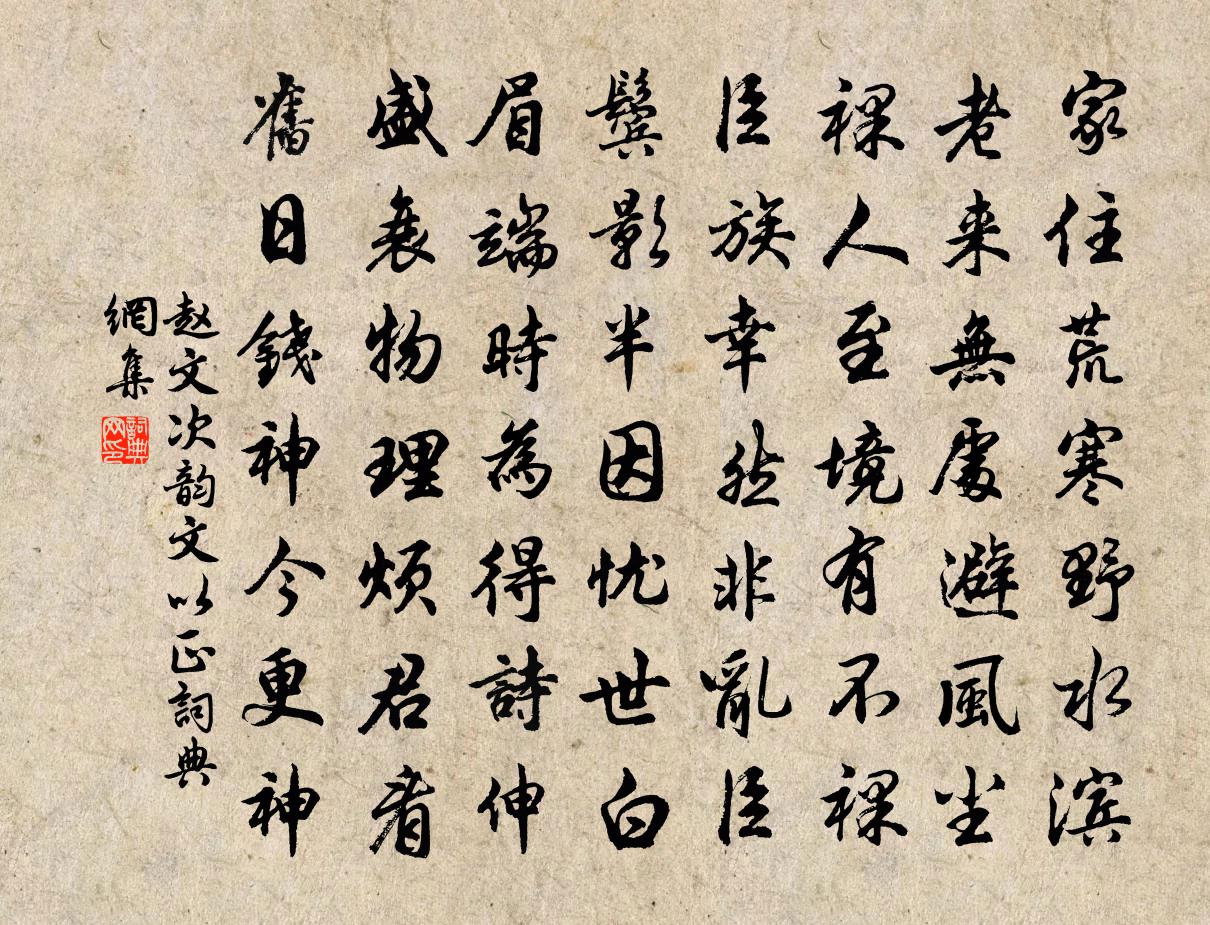 家住荒寒野水滨
老来無處避風尘
裸人至境有不裸
臣族幸然非亂臣
鬓影半因忧世白
眉端時為得詩伸
盛衰物理烦君看
舊日錢神今更神
赵文次韵文以正詞典
網集
詞典网印